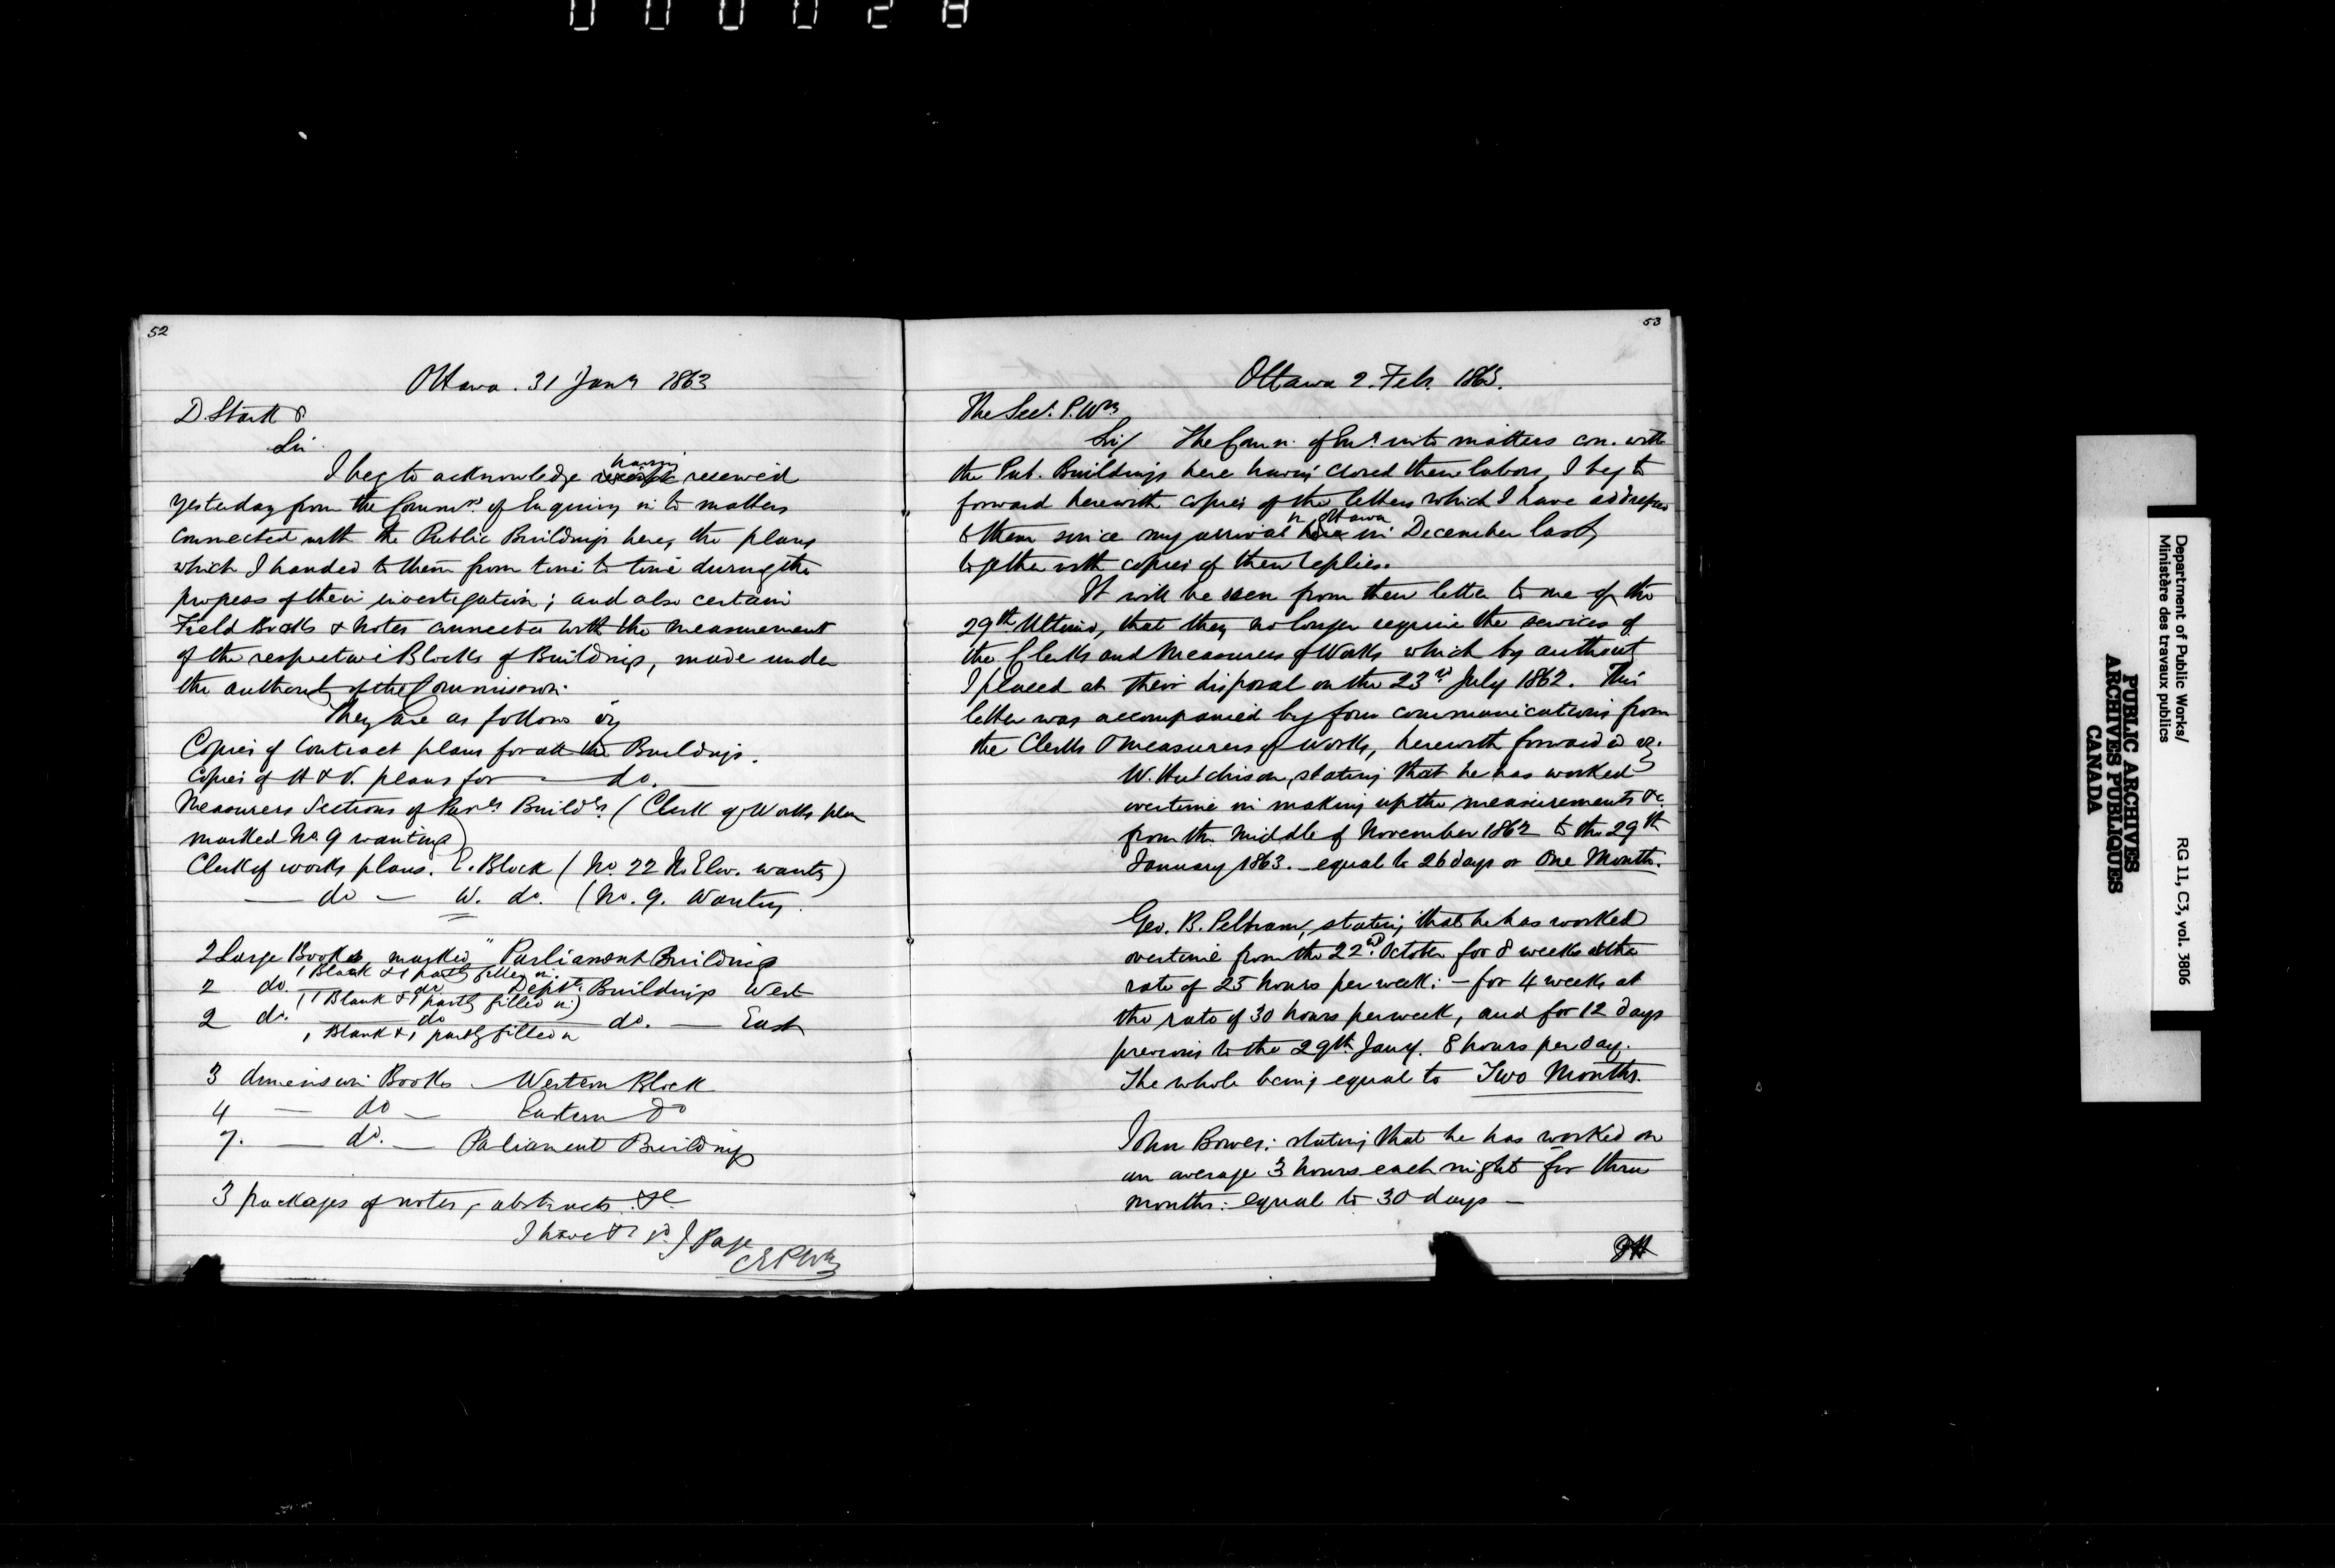 000028
52
Ottawa. 31 Jany 1863
D. Stark
Sir
I beg to acknowledge receipt having received
yesterday from the Commrs of Enquiry into matters
connected with the Public Buildings here, the plans
which I handed to them from time to time during the
progress of their investigation; and also certain
Field Books & notes connected with the measurement
of the respective Blocks of Buildings, made under
the authority of the Commission.
They are as follows viz
Copies of Contract plans for all the Buildings.
Copies of H & V. plans for — do.
Measurers Sections of Parlt Buildgs. (Clerk of Works plan
marked No. 9 wanting)
Clerk of works plans. E. Block (No. 22 N. Elev. wantg)
— do — W. do. (No. 9. Wanting.
2 Large Books, marked "Parliament Buildings
1 Blank & 1 partly filled in.
2 do. do Deptl. Buildings West
(1 Blank & 1 partly filled in)
2 do. — do — do. — East
1 Blank & 1 partly filled in
3 dimension Books — Western Block
4 — do — Eastern do
7. — do. — Parliament Buildings
3 packages of notes, abstracts &c
I have &c sd. J Page
CEPWks
53
Ottawa 2. Feb. 1863.
The Sec. P. Wks
Sir/ The Comn. of Enq. into matters con. with
the Pub. Buildings here having closed their labors, I beg to
forward herewith copies of the letters which I have addressed
to them since my arrival here in Ottawa in December last,
together with copies of their replies.
It will be seen from their letter to me of the
29th Ultimo, that they no longer require the services of
the Clerks and Measurers of Works which by authority
I placed at their disposal on the 23rd July 1862. This
letter was accompanied by four communications from
the Clerks & Measurers of Works, herewith forwarded viz.
W. Hutchison, stating that he has worked
overtime in making up the measurements &c.
from the middle of November 1862 to the 29th
January 1863. — equal to 26 days or One Month.
Geo. B. Pelham, stating that he has worked
overtime from the 22nd October for 8 weeks at the
rate of 25 hours per week: — for 4 weeks at
the rate of 30 hours per week, and for 12 days
previous to the 29th Jany. 8 hours per day.
The whole being equal to Two Months.
John Bowes: stating that he has worked on
an average 3 hours each night for three
months: equal to 30 days —
Department of Public Works/
Ministère des travaux publics
RG 11, C3, vol. 3806
PUBLIC ARCHIVES
ARCHIVES PUBLIQUES
CANADA